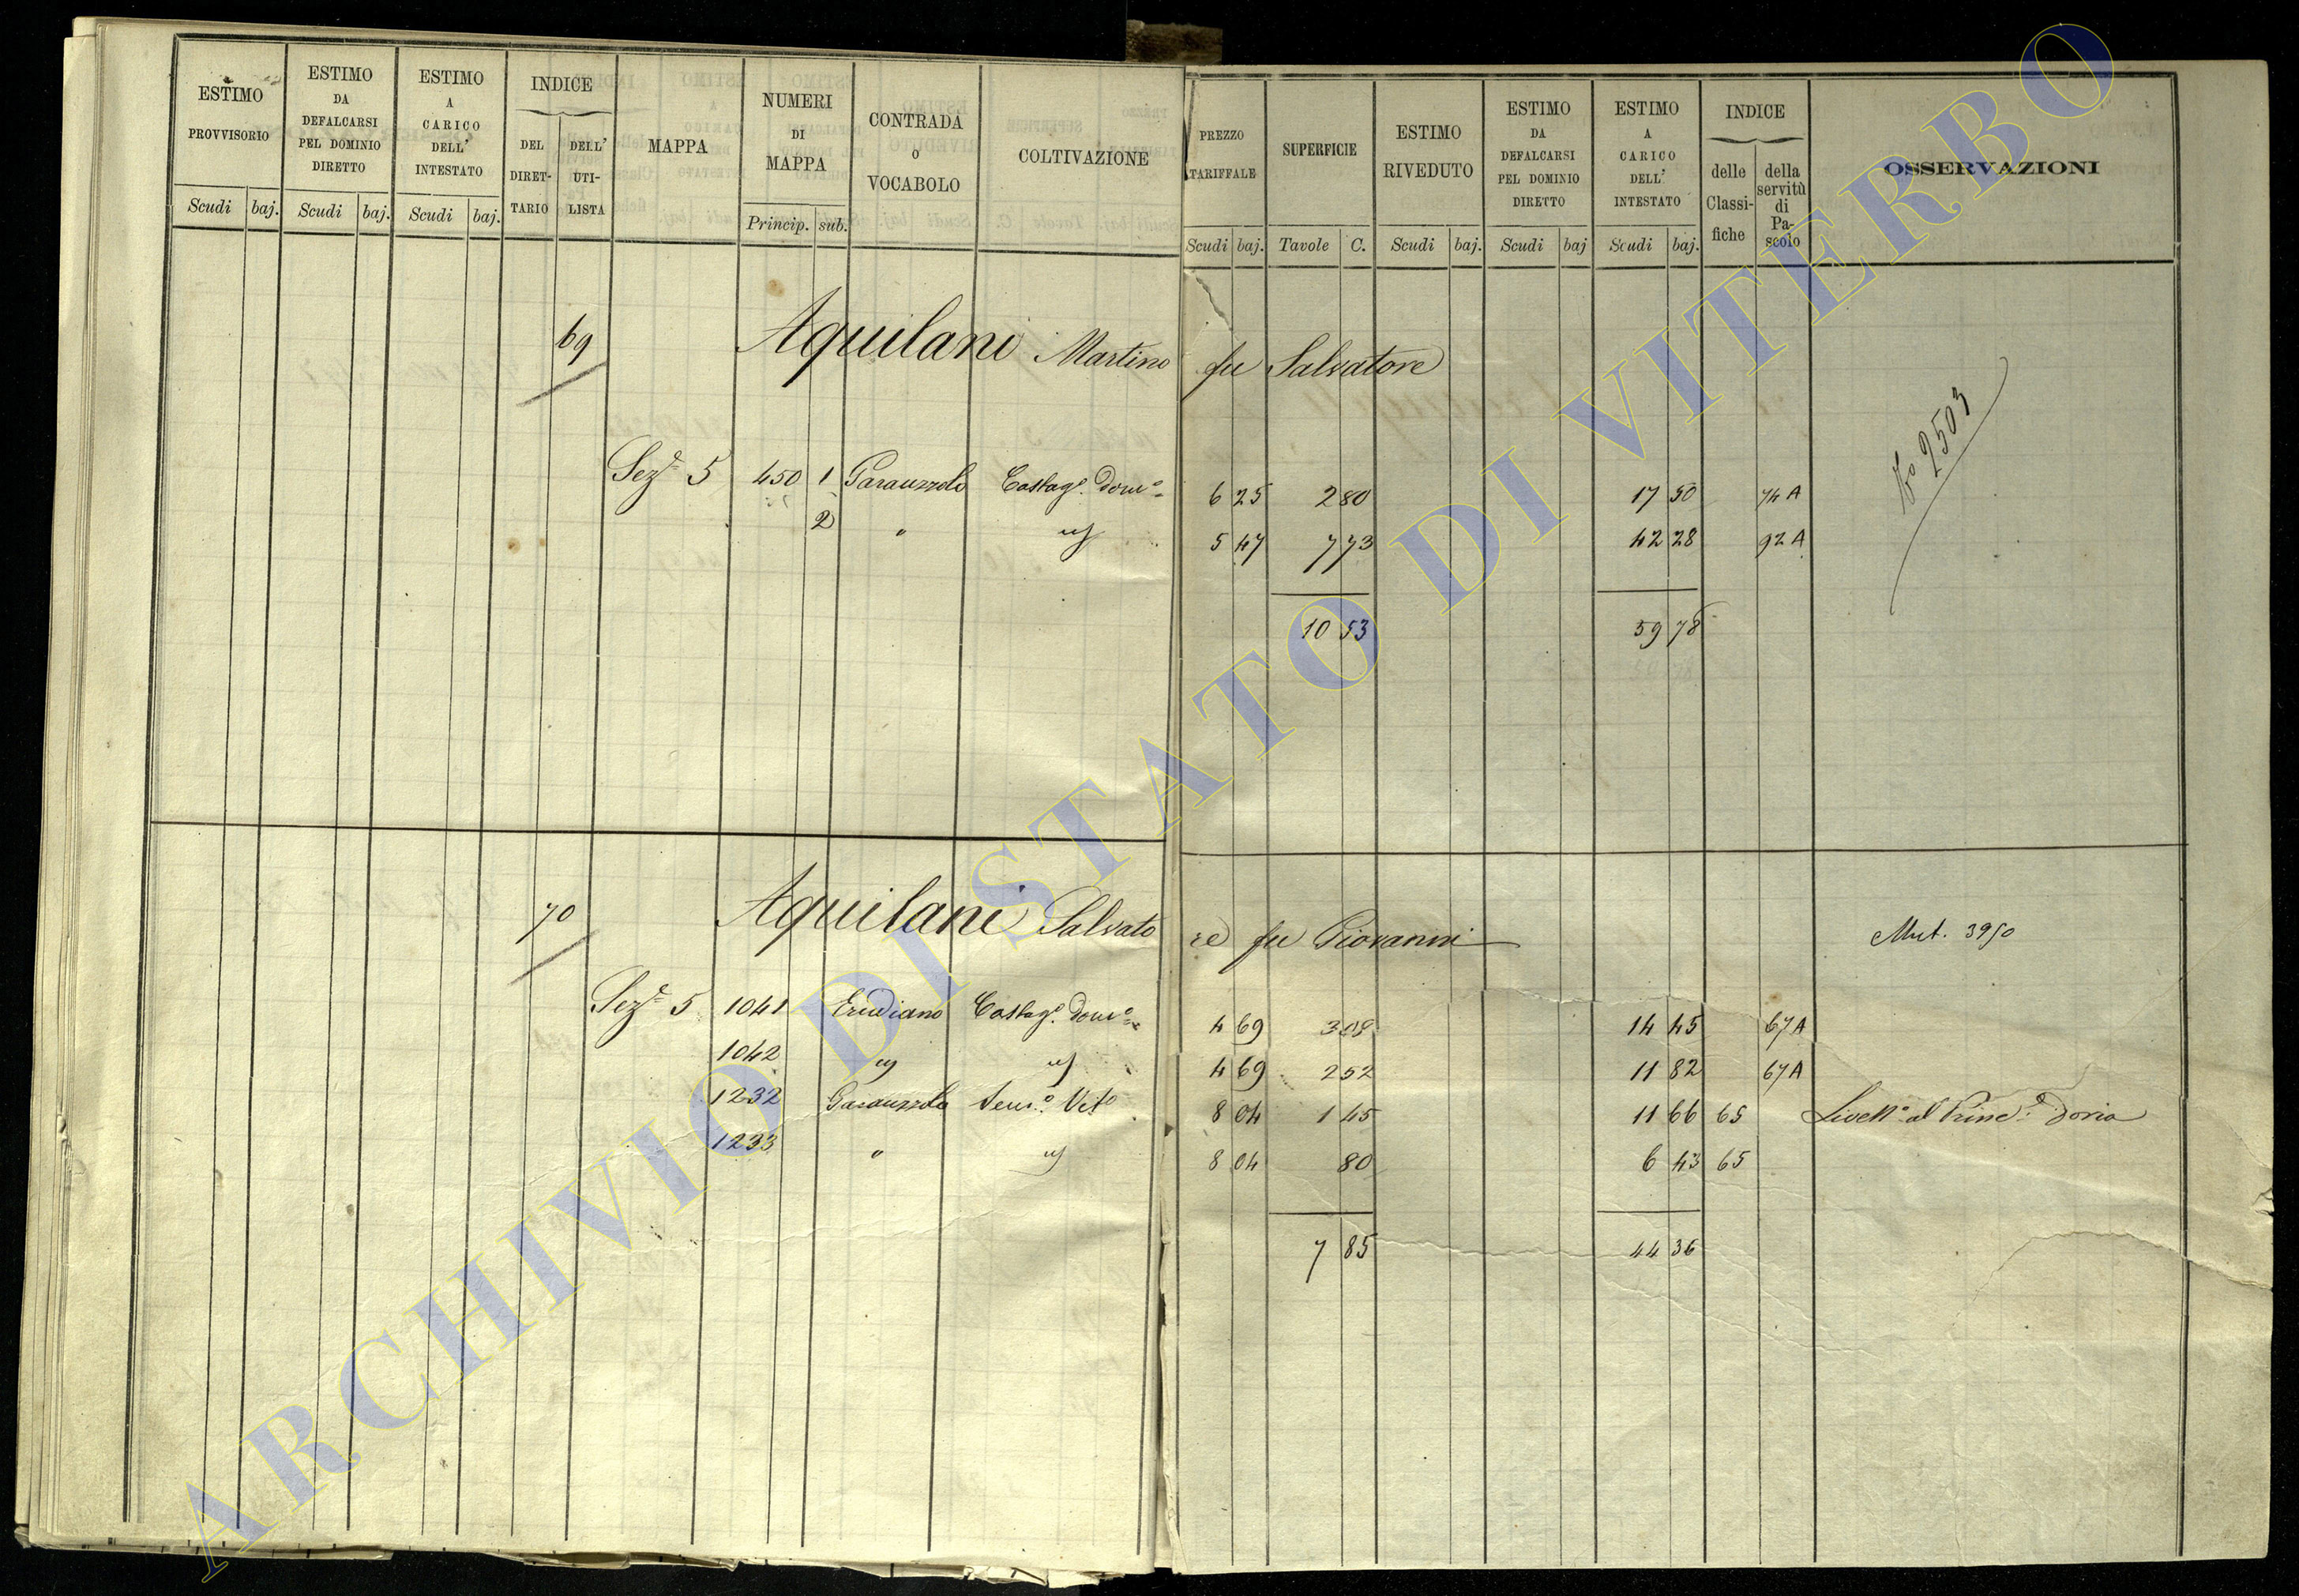 ESTIMO PROVVISORIO
ESTIMO DA DEFALCARSI PEL DOMINIO DIRETTO
ESTIMO A CARICO DELL' INTESTATO
INDICE
DEL DIRET-TARIO
DELL' UTI-LISTA
MAPPA
NUMERI DI MAPPA
CONTRADA O VOCABOLO
COLTIVAZIONE
PREZZO TARIFFALE
SUPERFICIE
ESTIMO RIVEDUTO
ESTIMO DA DEFALCARSI PEL DOMINIO DIRETTO
ESTIMO A CARICO DELL' INTESTATO
INDICE
delle Classi-fiche
della servitù di Pa-scolo
OSSERVAZIONI
Scudi baj. Scudi baj. Scudi baj. Princip. sub. Scudi baj. Tavole C. Scudi baj. Scudi baj Scudi baj.
69 Aquilani Martino fu Salvatore
No 2503
Sez.e 5 450 1 Parauzzolo Castag.o dom.o 6 25 2 80 17 50 74 A
2 " " 5 47 7 73 42 28 92 A
10 53 59 78
70 Aquilani Salvatore fu Giovanni
Mut. 3950
Sez.e 5 1041 Castag.o dom.o 4 69 3 08 14 45 67 A
1042 " " 4 69 2 52 11 82 67 A
1232 Parauzzolo Sem.o Vit.o 8 04 1 45 11 66 65 Livell.o al Princ.e Doria
1233 " " 8 04 80 6 43 65
7 85 44 36
ARCHIVIO DI STATO DI VITERBO